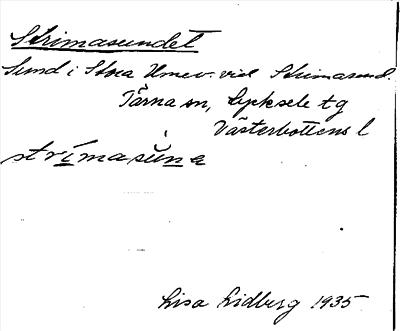 Strimasundet
Sund i Stora Umev. vid Strimasund.
Tärna sn, Lycksele tg
Västerbottens l
strímasúne
Lisa Lidberg 1935